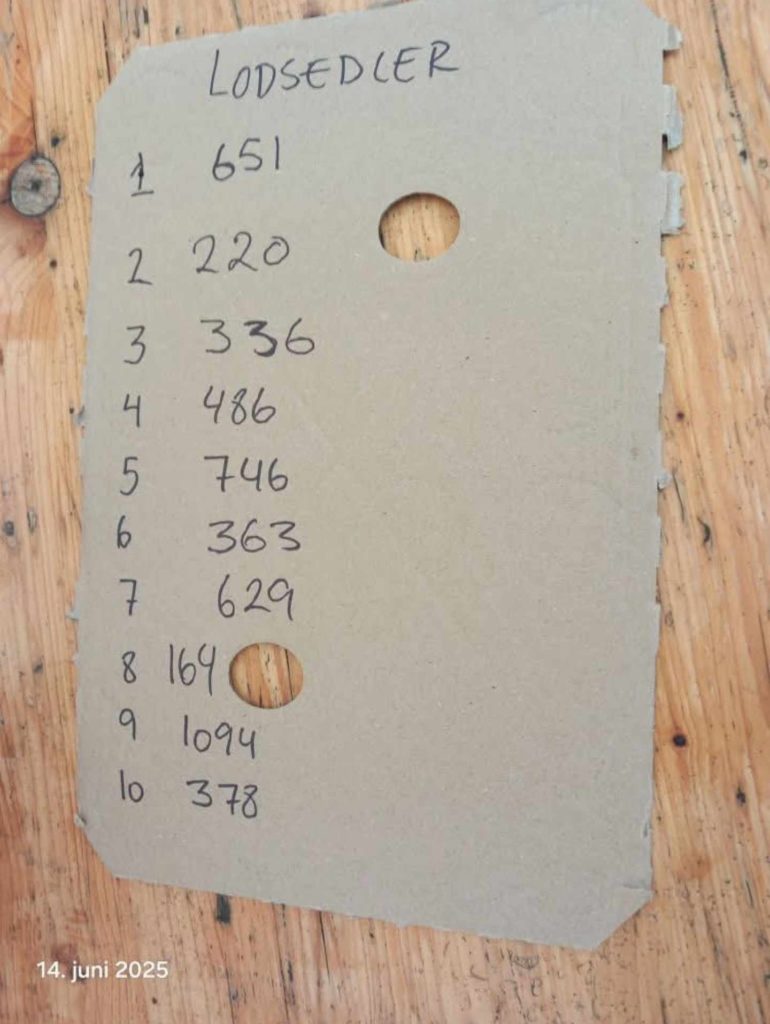 LODSEDLER
1 651
2 220
3 336
4 486
5 746
6 363
7 629
8 164
9 1094
10 378
14. juni 2025